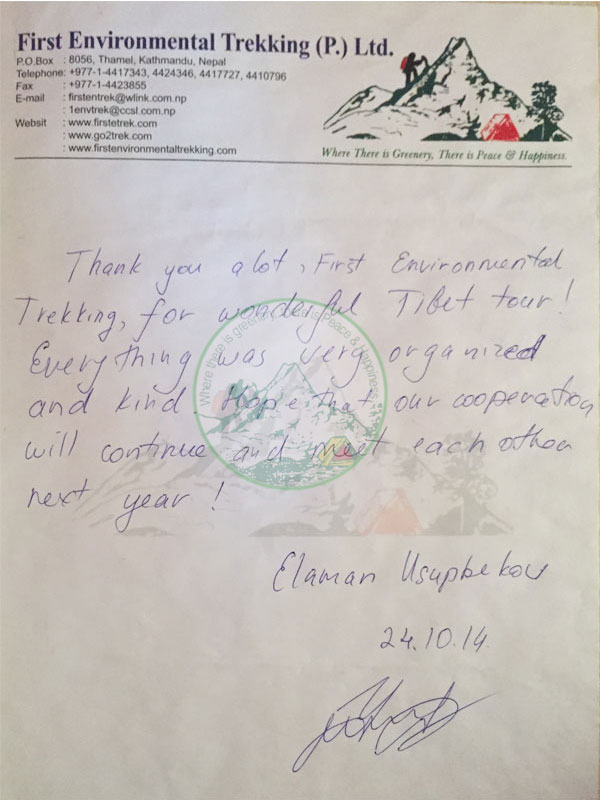 First Environmental Trekking (P.) Ltd.
P.O.Box : 8056, Thamel, Kathmandu, Nepal
Telephone: +977-1-4417343, 4424346, 4417727, 4410796
Fax : +977-1-4423855
E-mail : firstentrek@wlink.com.np
: 1envtrek@ccsl.com.np
Websit : www.firstetrek.com
: www.go2trek.com
: www.firstenvironmentaltrekking.com
Where There is Greenery, There is Peace & Happiness.
Thank you a lot, First Environmental
Trekking, for wonderful Tibet tour!
Everything was very organized
and kind. Hope that our cooperation
will continue and meet each other
next year!
Where there is greenery, there is Peace & Happiness
Elaman Usupbekov
24.10.14